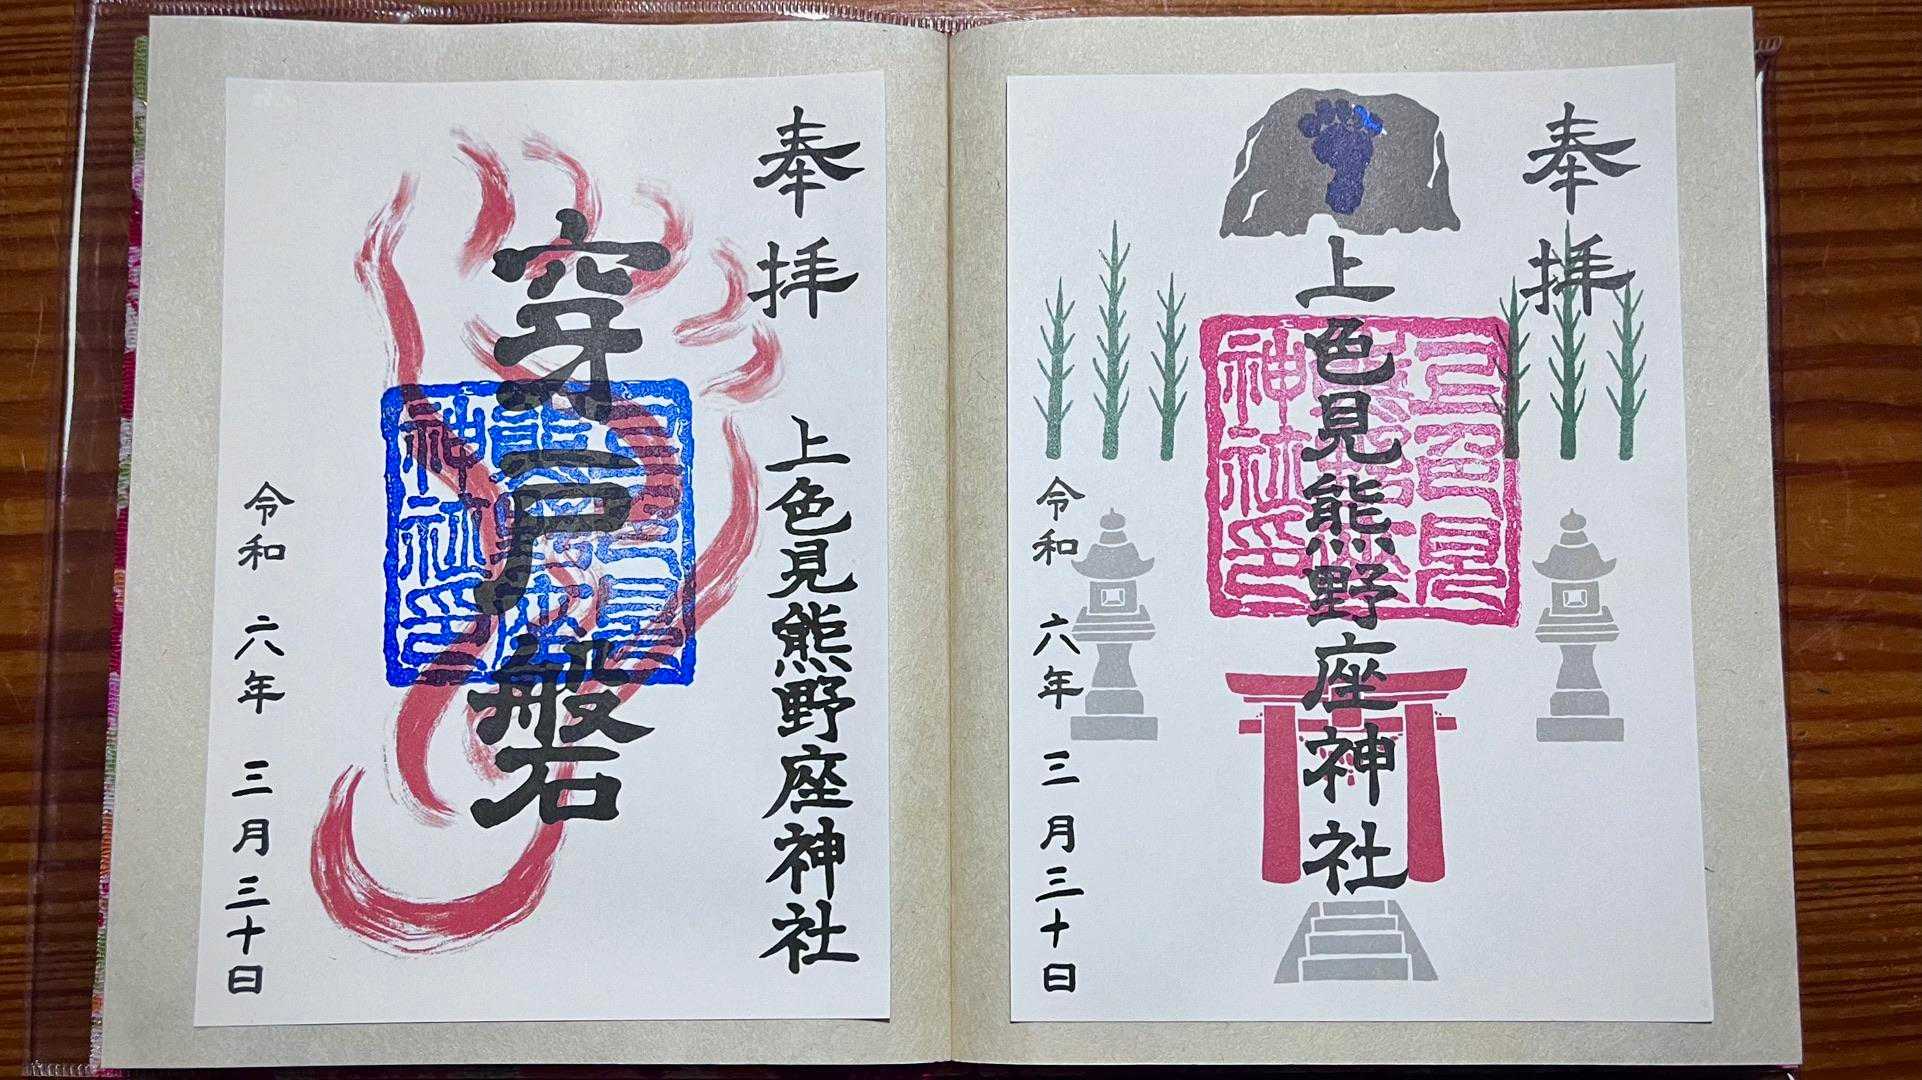 奉拝
上色見熊野座神社
上色見
熊野座
神社印
令和六年三月三十日
奉拝
上色見熊野座神社
穿戸磐
上色見
熊野座
神社印
令和六年三月三十日